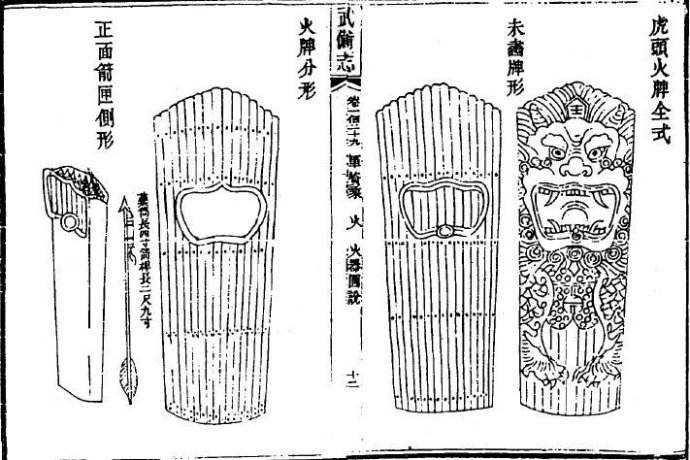 虎頭火牌全式
未畫牌形
武備志
卷一百二十九 軍資乘 火 火器圖說
十二
火牌分形
藥筒長四寸箭桿長二尺九寸
正面箭匣側形